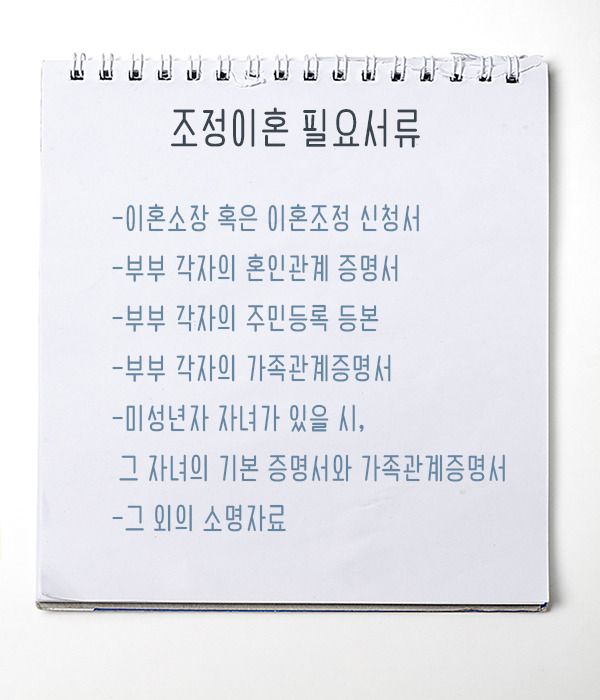 조정이혼 필요서류
-이혼소장 혹은 이혼조정 신청서
-부부 각자의 혼인관계 증명서
-부부 각자의 주민등록 등본
-부부 각자의 가족관계증명서
-미성년자 자녀가 있을 시,
그 자녀의 기본 증명서와 가족관계증명서
-그 외의 소명자료